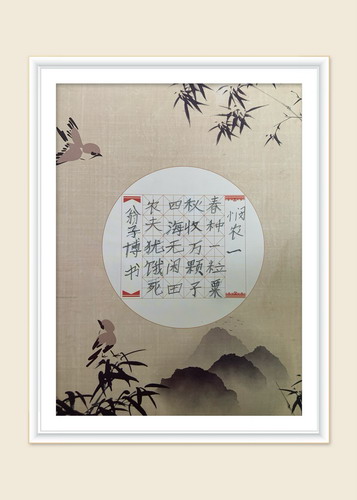 悯农一
春种一粒粟
秋收万颗子
四海无闲田
农夫犹饿死
翁子博书